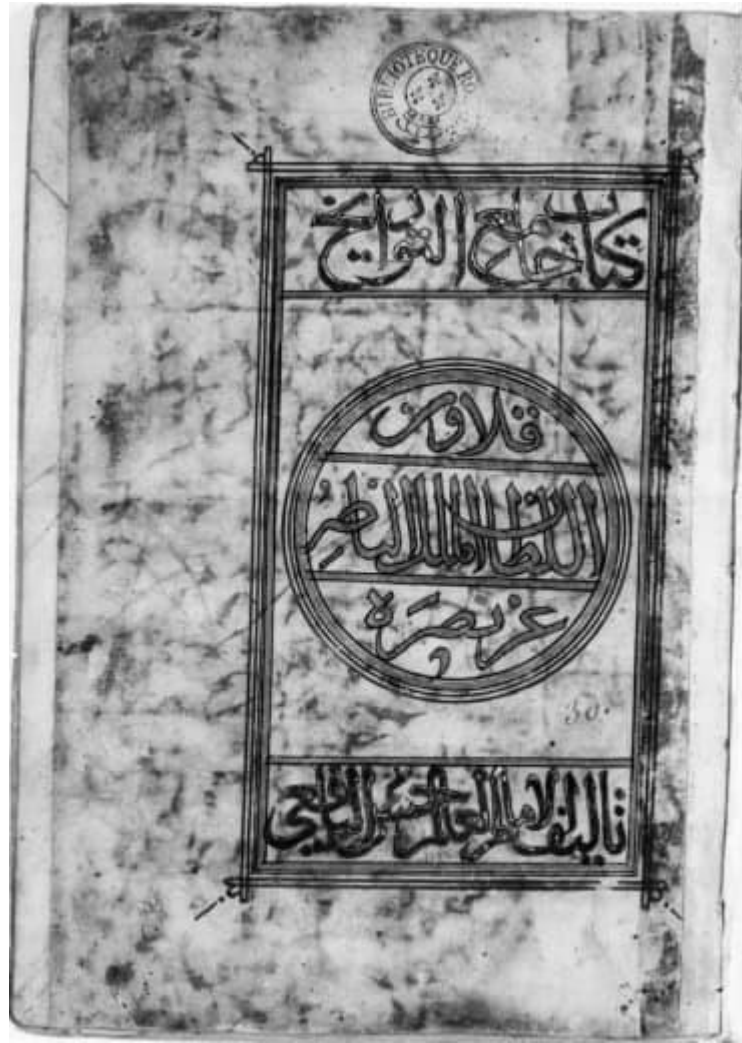 BIBLIOTEQUE RO
كتاب جامع التواريخ
قلاون
السلطان الملك الناصر
عز نصره
30.
تاليف الامام العالم حسن اليافعي